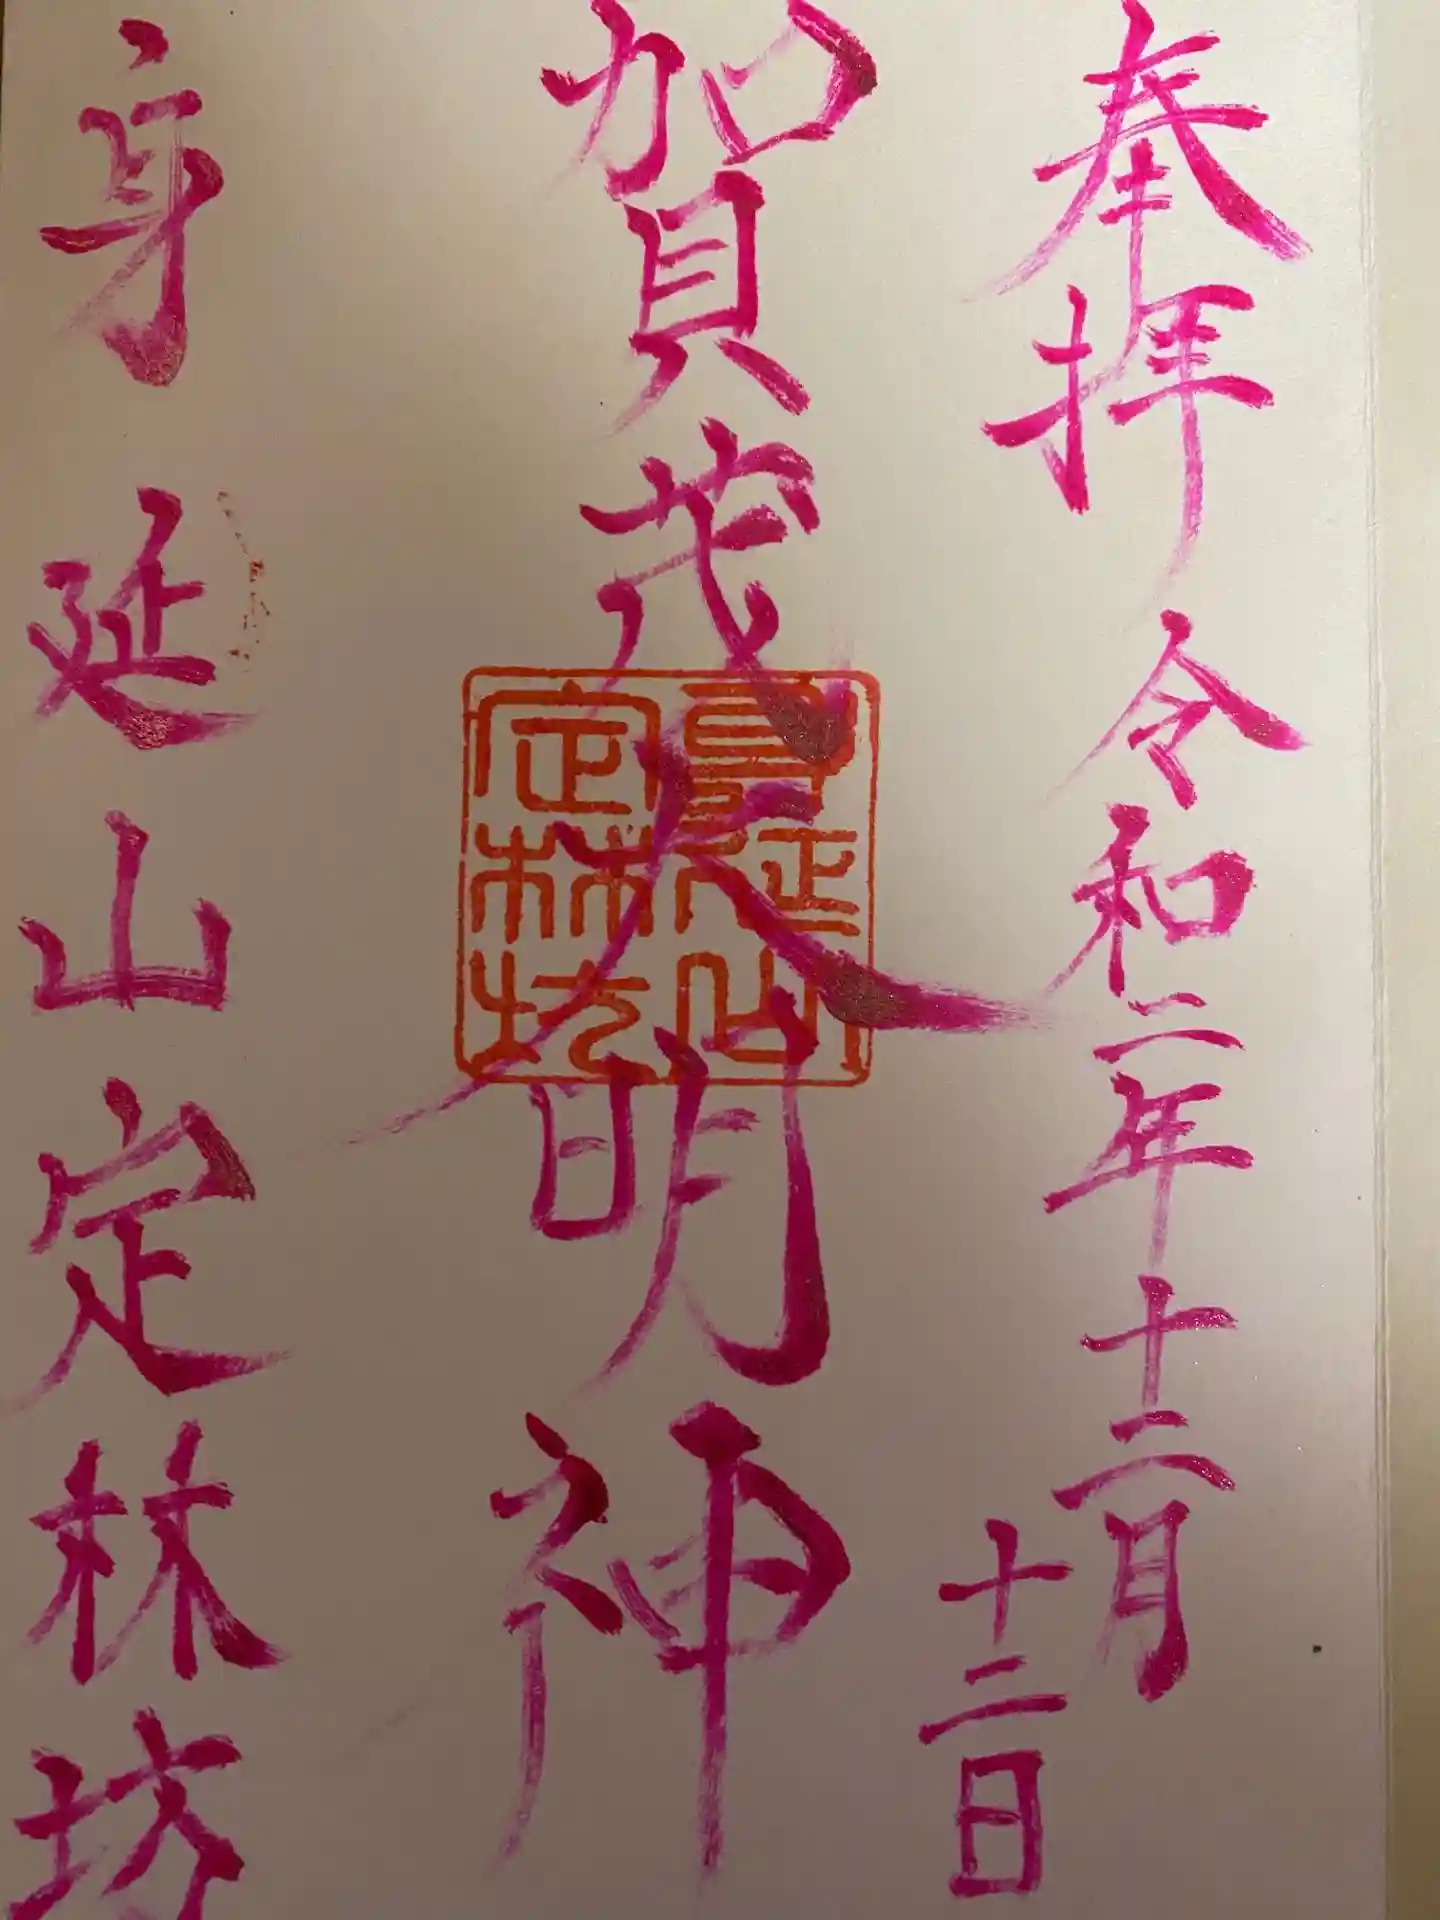 奉拝 令和二年十二月
十二日
加賀茂大明神
身延山
定林坊
身延山定林坊